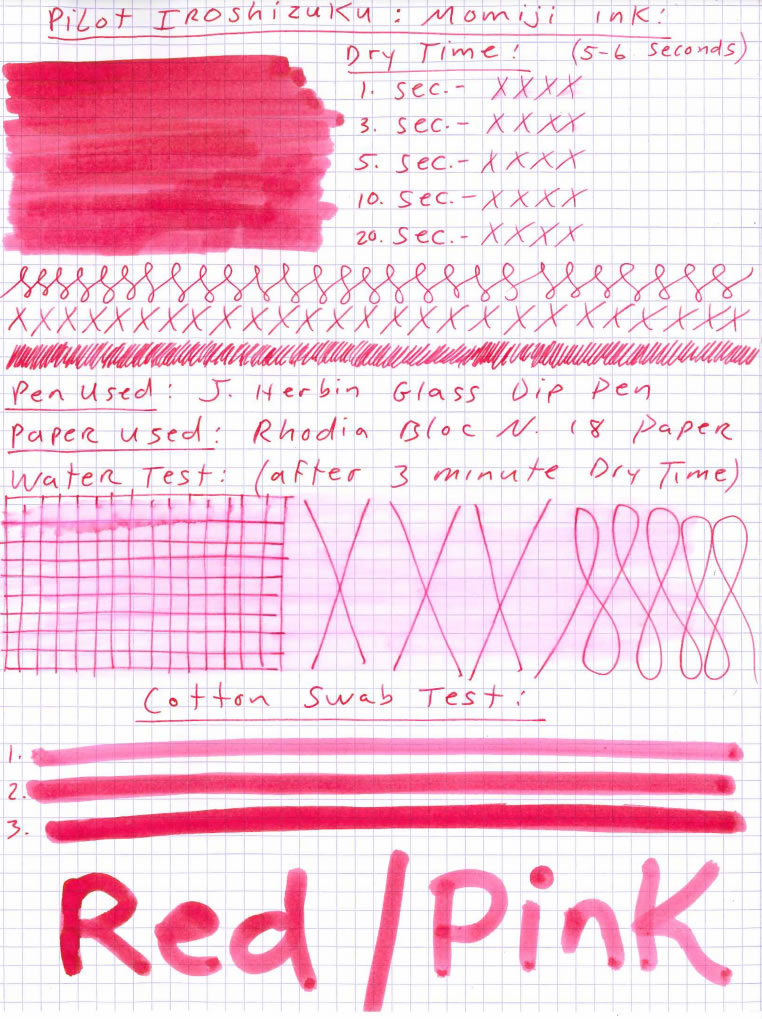 Pilot Iroshizuku: Momiji ink:
Dry Time: (5-6 seconds)
1. sec.- XXXX
3. sec.- XXXX
5. sec.- XXXX
10. sec.- XXXX
20. sec.- XXXX
Pen Used: J. Herbin Glass Dip Pen
Paper Used: Rhodia Bloc N. 18 Paper
Water Test: (after 3 minute Dry Time)
Cotton Swab Test:
1.
2.
3.
Red/Pink